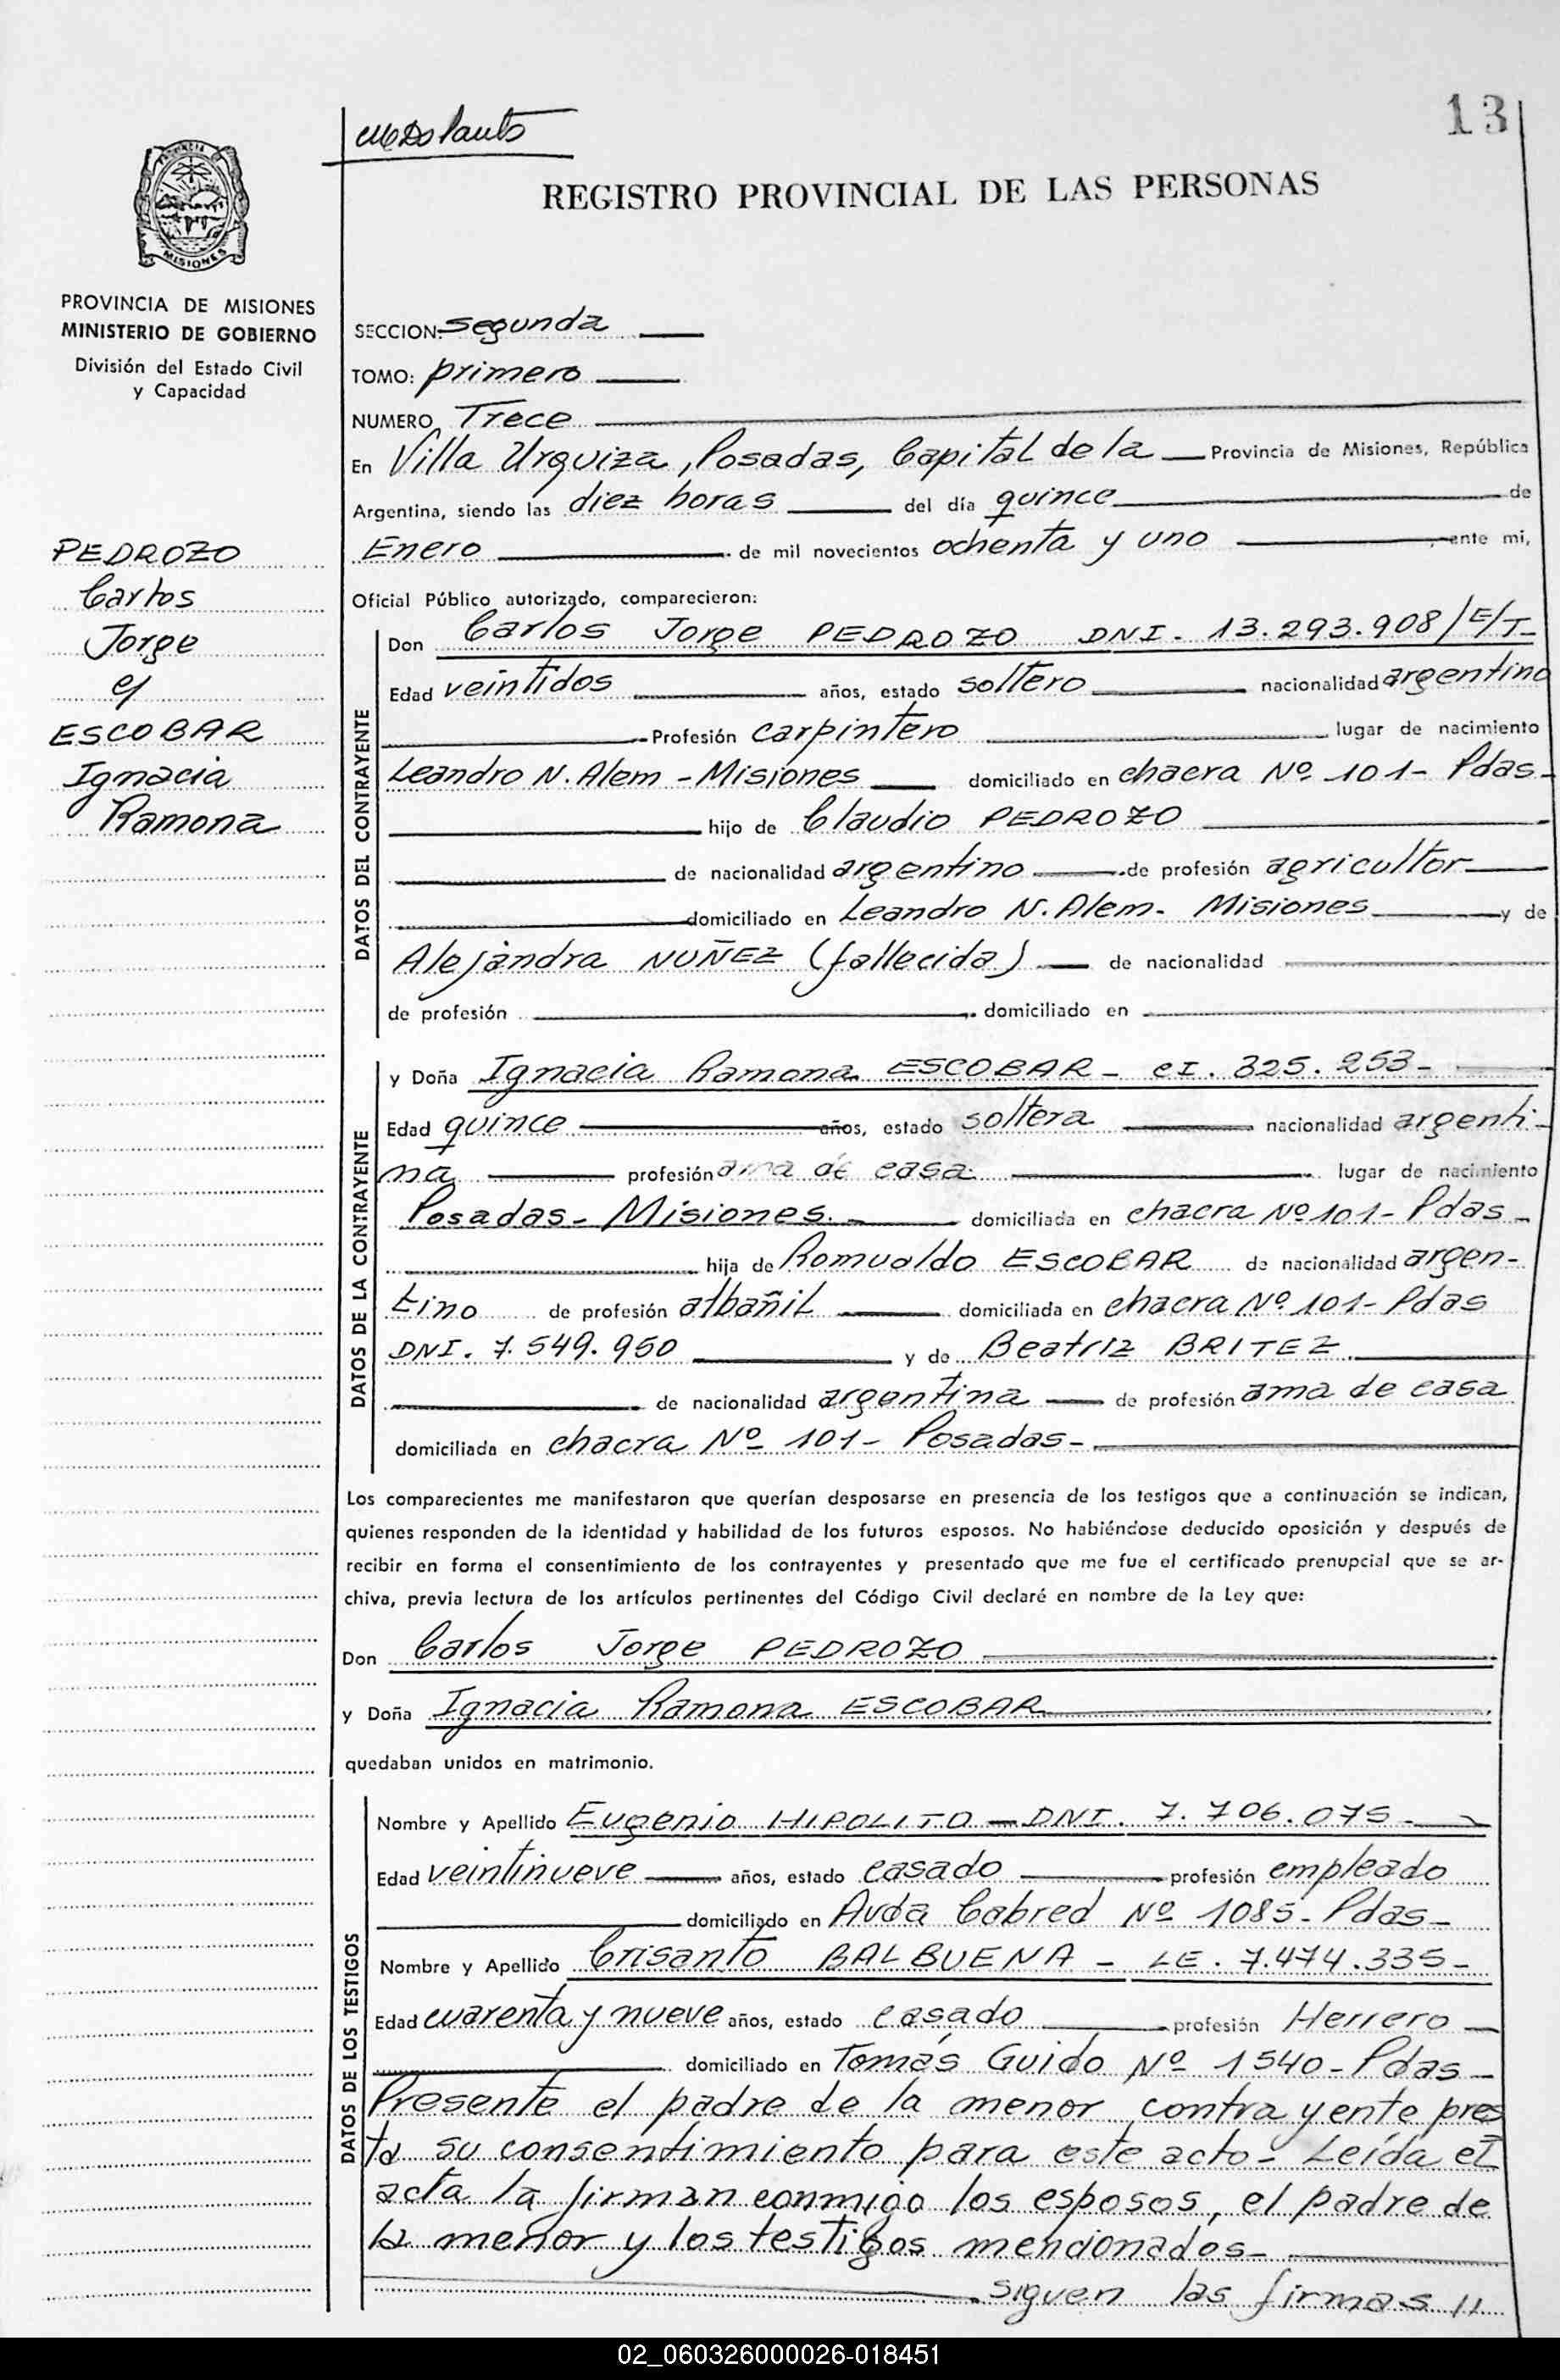 13
REGISTRO PROVINCIAL DE LAS PERSONAS
PROVINCIA
MISIONES
PROVINCIA DE MISIONES
MINISTERIO DE GOBIERNO
División del Estado Civil
y Capacidad
PEDROZO
Carlos
Jorge
y
ESCOBAR
Ignacia
Ramona
SECCION: segunda
TOMO: primero
NUMERO Trece
En Villa Urquiza, Posadas, Capital de la Provincia de Misiones, República
Argentina, siendo las diez horas del día quince de
Enero de mil novecientos ochenta y uno ante mi,
Oficial Público autorizado, comparecieron:
DATOS DEL CONTRAYENTE
Don Carlos Jorge PEDROZO DNI. 13.293.908/E/T-
Edad veintidos años, estado soltero nacionalidad argentino
Profesión carpintero lugar de nacimiento
Leandro N. Alem - Misiones domiciliado en chacra Nº 101- Pdas-
hijo de Claudio PEDROZO
de nacionalidad argentino de profesión agricultor
domiciliado en Leandro N. Alem- Misiones y de
Alejandra NUÑEZ (fallecida) de nacionalidad
de profesión domiciliado en
DATOS DE LA CONTRAYENTE
y Doña Ignacia Ramona ESCOBAR - CI. 325.253-
Edad quince años, estado soltera nacionalidad argenti-
na profesión ama de casa lugar de nacimiento
Posadas- Misiones. domiciliada en chacra Nº 101- Pdas-
hija de Romualdo ESCOBAR de nacionalidad argen-
tino de profesión albañil domiciliada en chacra Nº 101- Pdas
DNI. 7.549.950 y de Beatriz BRITEZ
de nacionalidad argentina de profesión ama de casa
domiciliada en chacra Nº 101- Posadas-
Los comparecientes me manifestaron que querían desposarse en presencia de los testigos que a continuación se indican,
quienes responden de la identidad y habilidad de los futuros esposos. No habiéndose deducido oposición y después de
recibir en forma el consentimiento de los contrayentes y presentado que me fue el certificado prenupcial que se ar-
chiva, previa lectura de los artículos pertinentes del Código Civil declaré en nombre de la Ley que:
Don Carlos Jorge PEDROZO
y Doña Ignacia Ramona ESCOBAR
quedaban unidos en matrimonio.
DATOS DE LOS TESTIGOS
Nombre y Apellido Eugenio HIPOLITO - DNI. 7.706.075-
Edad veintinueve años, estado casado profesión empleado
domiciliado en Avda Cabred Nº 1085- Pdas-
Nombre y Apellido Crisanto BALBUENA - LE. 7.474.335-
Edad cuarenta y nueve años, estado casado profesión Herrero
domiciliado en Tomás Guido Nº 1540- Pdas-
Presente el padre de la menor contrayente pres
ta su consentimiento para este acto- Leída el
acta la firman conmigo los esposos, el padre de
la menor y los testigos mencionados-
siguen las firmas //
02_060326000026-018451